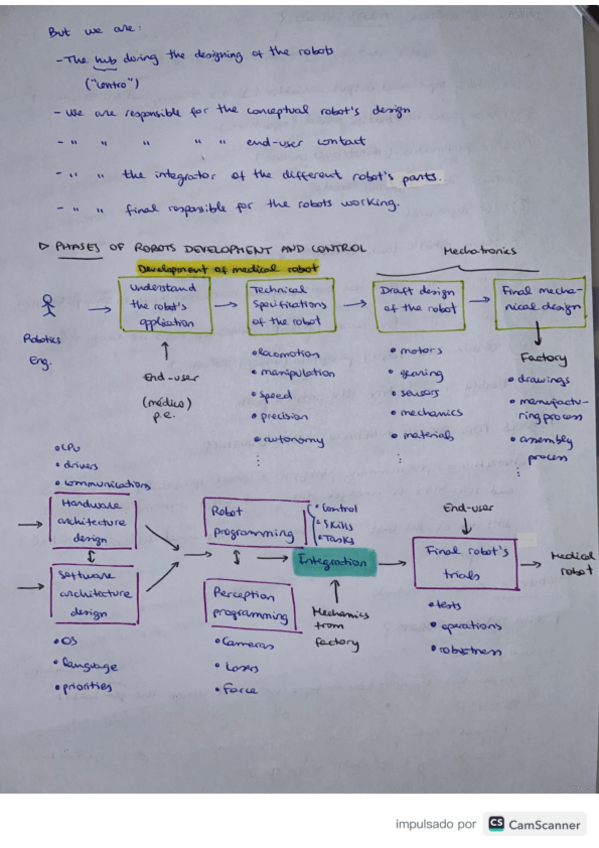 But we are:
- The hub doing the designing of the robots
("centro")
- We are responsible for the conceptual robot's design
- " " " " " end-user contact
- " " the integrator of the different robot's parts.
- " " final responsible for the robots working.
▷ PHASES OF ROBOTS DEVELOPMENT AND CONTROL
Mechatronics
Development of medical robot
Robotics
Eng.
understand
the robot's
application
End-user
(médico)
p.e.
Technical
Specifications
of the robot
• locomotion
• manipulation
• speed
• precision
• autonomy
⋮
Draft design
of the robot
• motors
• gearing
• sensors
• mechanics
• materials
⋮
Final mecha-
nical design
Factory
• drawings
• manufactu-
ring process
• assembly
process
⋮
• CPU
• drivers
• communications
Hardware
architecture
design
Software
architecture
design
• OS
• language
• priorities
Robot
programming
• Control
• Skills
• Tasks
Perception
programming
• Cameras
• Lasers
• Force
Integration
Mechanics
from
factory
End-user
Final robot's
trials
• tests
• operations
• robustness
Medical
robot
impulsado por CS CamScanner